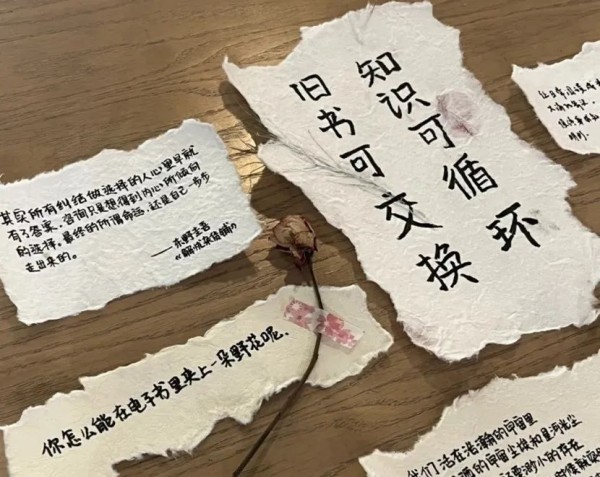 知识可循环
旧书可交换
其实所有纠结做选择的人心里早就
有了答案，咨询只是想得到内心所倾向
的选择，最终的所谓命运，还是自己一步步
走出来的。
——东野圭吾
《解忧杂货铺》
你怎么能在电子书里夹上一朵野花呢．
让日常阅读成
我们活在浩瀚的宇宙里
洒的宇宙尘埃和星河光尘
要渺小的存在